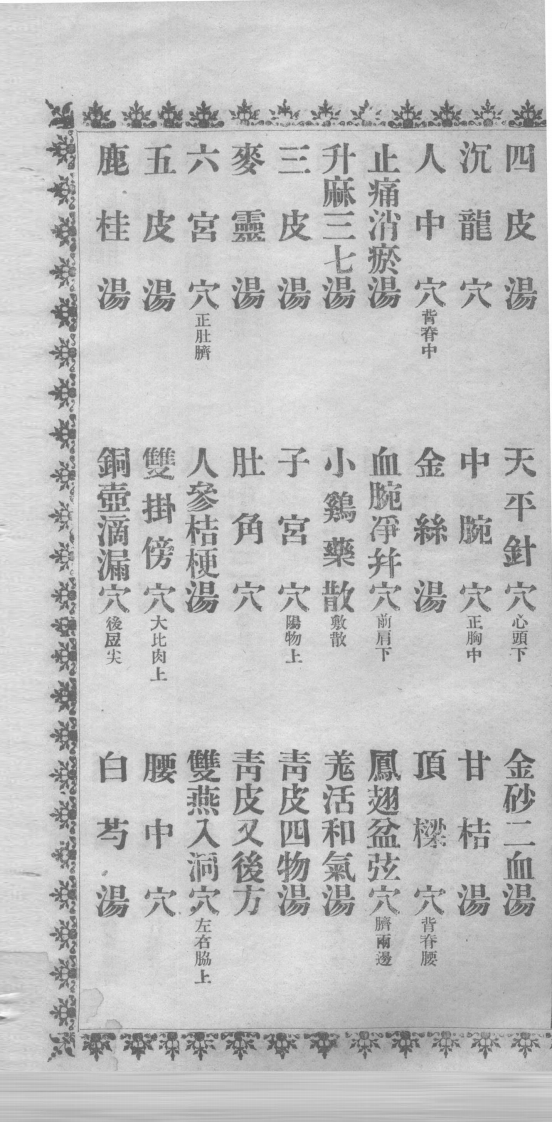 四皮湯　天平針穴心頭下　金砂二血湯
沉龍穴　中腕穴正胸中　甘桔湯
人中穴背脊中　金絲湯　頂樑穴背脊腰
止痛消瘀湯　血腕凈幷穴前肩下　鳳翅盆弦穴臍兩邊
升麻三七湯　小鷄藥散敷散　羗活和氣湯
三皮湯　子宮穴陽物上　靑皮四物湯
麥靈湯　肚角穴　靑皮又後方
六宮穴正肚臍　人參桔梗湯　雙燕入洞穴左右脇上
五皮湯　雙掛傍穴大比肉上　腰中穴
鹿桂湯　銅壺滴漏穴後尖　白芍湯